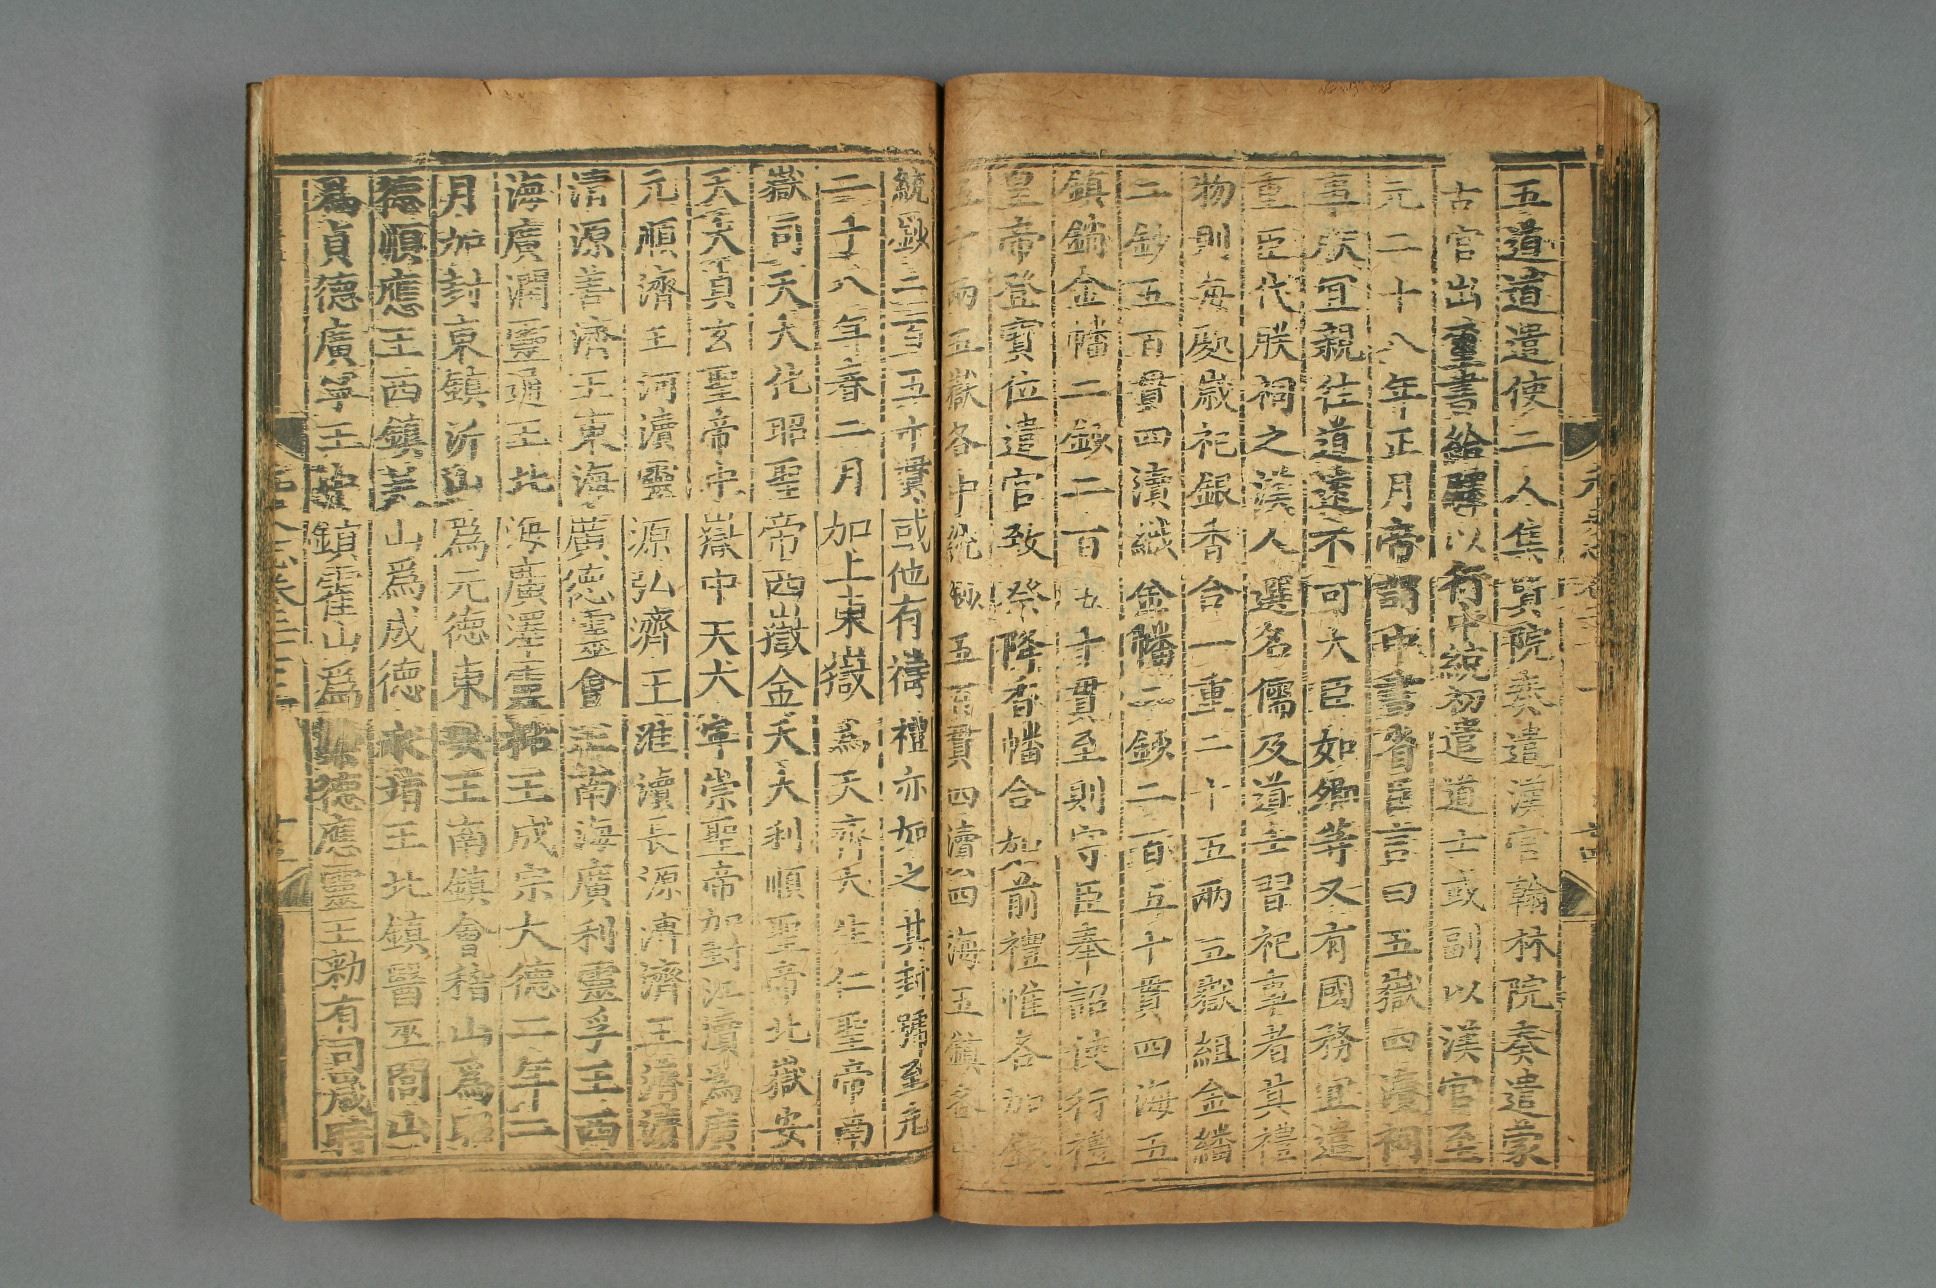 五道道遣使二人集賢院奏遣漢官翰林院奏遣蒙
古官出璽書給驛以行中統初遣道士或副以漢官至
元二十八年正月帝謂中書省臣言曰五嶽四瀆祠
事朕宜親往道遠不可大臣如卿等又有國務宜遣
重臣代朕祠之漢人選名儒及道士習祀事者其禮
物則每處歲祀銀香合一重二十五兩五嶽組金幡
二鈔五百貫四瀆織金幡二鈔二百五十貫四海五
鎮銷金幡二鈔二百五十貫至則守臣奉詔使行禮
皇帝登寶位遣官致祭降香幡合如前禮惟各加銀
五十兩五嶽各中統鈔五百貫四瀆四海五鎮各中
統鈔二百五十貫或他有禱禮亦如之其封號至元
二十八年春二月加上東嶽為天齊大生仁聖帝南
嶽司天大化昭聖帝西嶽金天大利順聖帝北嶽安
天大貞玄聖帝中嶽中天大寧崇聖帝加封江瀆為廣
元順濟王河瀆靈源弘濟王淮瀆長源溥濟王濟瀆
清源善濟王東海廣德靈會王南海廣利靈孚王西
海廣潤靈通王北海廣澤靈祐王成宗大德二年十二
月加封東鎮沂山為元德東安王南鎮會稽山為昭
德順應王西鎮吳山為成德永靖王北鎮醫巫閭山
為貞德廣寧王中鎮霍山為崇德應靈王勑有司歲時